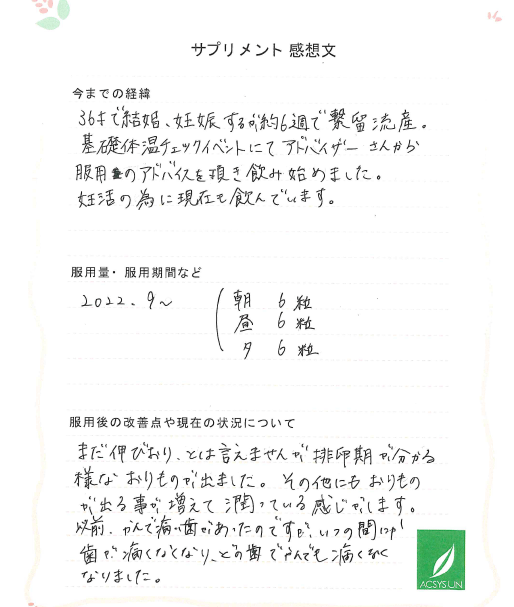 サプリメント 感想文
今までの経緯
36才で結婚、妊娠するが約6週で繋留流産。
基礎体温チェックイベントにて アドバイザー さんから
服用のアドバイスを頂き飲み始めました。
妊活の為に現在も飲んでいます。
服用量・服用期間など
2022.9〜
朝 6粒
昼 6粒
夕 6粒
服用後の改善点や現在の状況について
まだ伸びおり、とは言えませんが排卵期が分かる
様な おりものが出ました。その他にも おりもの
が出る事が増えて 潤っている感じがします。
以前、かんで痛い歯があったのですが、いつの間にか
歯が痛くなくなり、どの歯でかんでも痛くなく
なりました。
ACSYS LIN